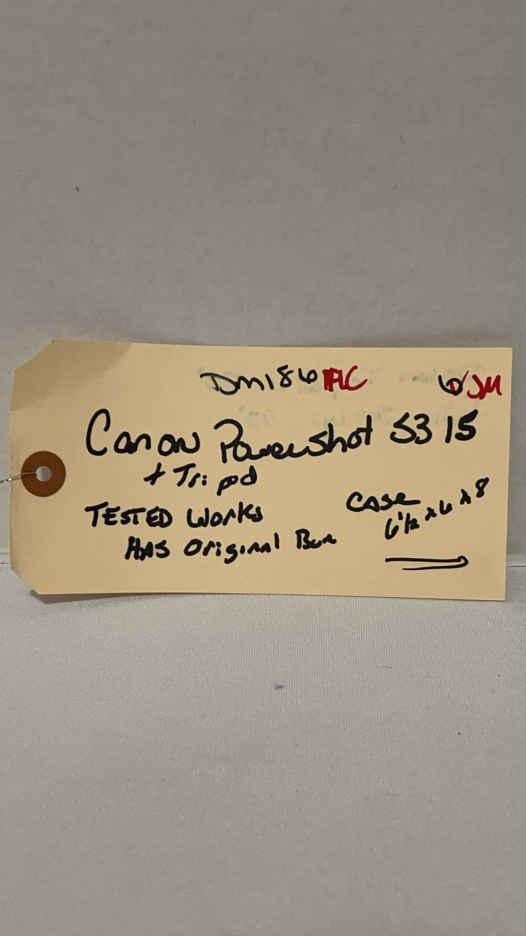 Dm186 AC 6 JM
Canon Powershot S3 IS
+ Tripod
TESTED Works
HAS Original Box
CASE
6 1/2 x 6 x 8